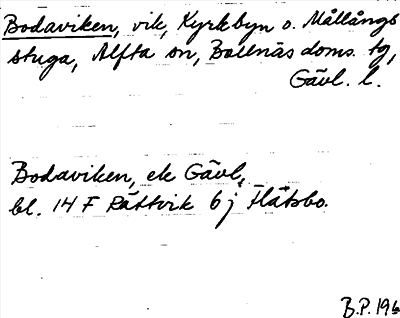 Bodaviken, vik, Kyrkbyn o. Mållångs
stuga, Alfta sn, Bollnäs doms. tg,
Gävl. l.
Bodaviken, ek Gävl,
bl. 14 F Rättvik 6 j Flätsbo.
B.P. 196